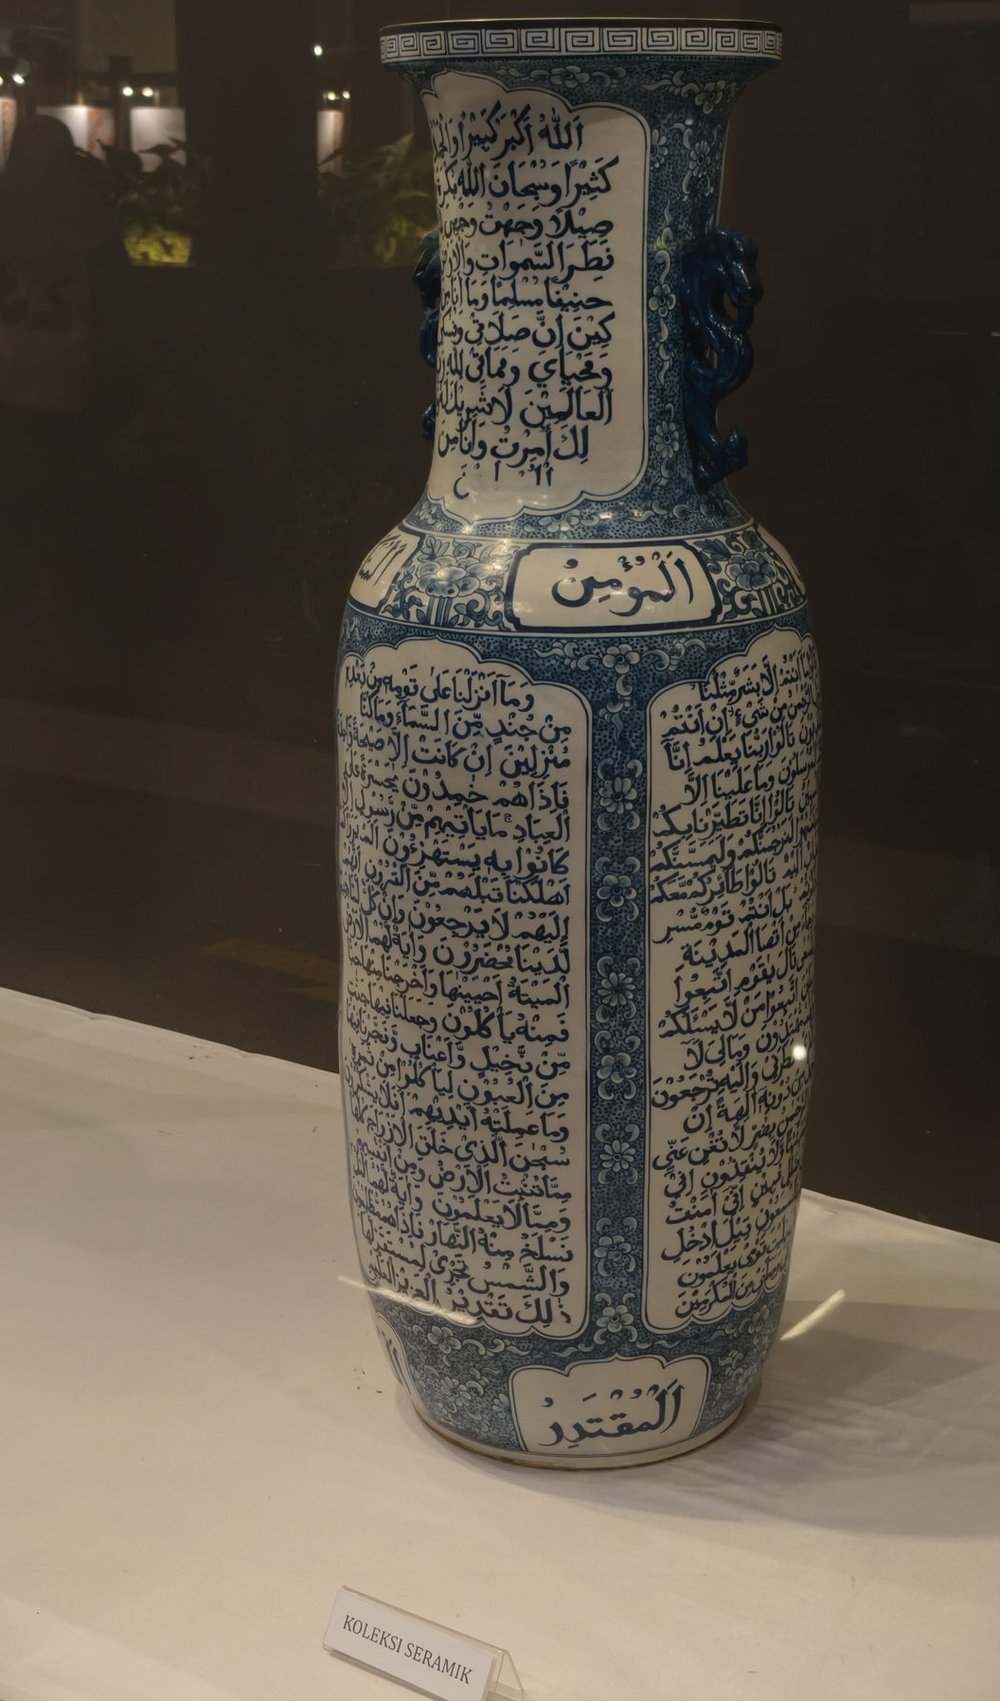 اَللّٰهُ اَكْبَرْ كَبِيْرًا وَالْحَمْدُ
كَثِيْرًا وَسُبْحَانَ اللّٰهِ بُكْرَةً
صِيْلًا وَجَّهْتُ وَجْهِيَ
فَطَرَ السَّمٰوَاتِ وَالْاَرْضَ
حَنِيْفًا مُسْلِمًا وَمَا اَنَا مِنَ
كِيْنَ اِنَّ صَلَاتِيْ وَنُسُكِيْ
وَمَحْيَايَ وَمَمَاتِيْ لِلّٰهِ رَبِّ
الْعَالَمِيْنَ لَا شَرِيْكَ لَهُ
لِكَ اُمِرْتُ وَاَنَا مِنَ
اَلْمُؤْمِنُ
وَمَا اَنْزَلْنَا عَلٰى قَوْمِهِ مِنْ بَعْدِهِ
مِنْ جُنْدٍ مِّنَ السَّمَاءِ وَمَا كُنَّا
مُنْزِلِيْنَ اِنْ كَانَتْ اِلَّا صَيْحَةً وَّاحِدَةً
فَاِذَا هُمْ خٰمِدُوْنَ يٰحَسْرَةً عَلَى
الْعِبَادِ مَا يَاْتِيْهِمْ مِّنْ رَّسُوْلٍ اِلَّا
كَانُوْا بِهِ يَسْتَهْزِءُوْنَ اَلَمْ يَرَوْا كَمْ
اَهْلَكْنَا قَبْلَهُمْ مِّنَ الْقُرُوْنِ اَنَّهُمْ
اِلَيْهِمْ لَا يَرْجِعُوْنَ وَاِنْ كُلٌّ لَّمَّا جَمِيْعٌ
لَّدَيْنَا مُحْضَرُوْنَ وَاٰيَةٌ لَّهُمُ الْاَرْضُ
الْمَيْتَةُ اَحْيَيْنٰهَا وَاَخْرَجْنَا مِنْهَا حَبًّا
فَمِنْهُ يَاْكُلُوْنَ وَجَعَلْنَا فِيْهَا جَنّٰتٍ
مِّنْ نَّخِيْلٍ وَّاَعْنَابٍ وَّفَجَّرْنَا فِيْهَا
مِنَ الْعُيُوْنِ لِيَاْكُلُوْا مِنْ ثَمَرِهِ
وَمَا عَمِلَتْهُ اَيْدِيْهِمْ اَفَلَا يَشْكُرُوْنَ
سُبْحٰنَ الَّذِيْ خَلَقَ الْاَزْوَاجَ كُلَّهَا
مِمَّا تُنْبِتُ الْاَرْضُ وَمِنْ اَنْفُسِهِمْ
وَمِمَّا لَا يَعْلَمُوْنَ وَاٰيَةٌ لَّهُمُ الَّيْلُ
نَسْلَخُ مِنْهُ النَّهَارَ فَاِذَا هُمْ مُّظْلِمُوْنَ
وَالشَّمْسُ تَجْرِيْ لِمُسْتَقَرٍّ لَّهَا
ذٰلِكَ تَقْدِيْرُ الْعَزِيْزِ الْعَلِيْمِ
مَا اَنْتُمْ اِلَّا بَشَرٌ مِّثْلُنَا
الرَّحْمٰنُ مِنْ شَيْءٍ اِنْ اَنْتُمْ
قَالُوْا رَبُّنَا يَعْلَمُ اِنَّا
لَمُرْسَلُوْنَ وَمَا عَلَيْنَا اِلَّا
قَالُوْا اِنَّا تَطَيَّرْنَا بِكُمْ
لَنَرْجُمَنَّكُمْ وَلَيَمَسَّنَّكُمْ
اَلِيْمٌ قَالُوْا طَائِرُكُمْ مَّعَكُمْ
بَلْ اَنْتُمْ قَوْمٌ مُّسْرِ
مِنْ اَقْصَا الْمَدِيْنَةِ
قَالَ يٰقَوْمِ اتَّبِعُوا
اتَّبِعُوْا مَنْ لَّا يَسْئَلُكُمْ
مُّهْتَدُوْنَ وَمَالِيَ لَا
فَطَرَنِيْ وَاِلَيْهِ تُرْجَعُوْنَ
مِنْ دُوْنِهِ اٰلِهَةً اِنْ
بِضُرٍّ لَّا تُغْنِ عَنِّيْ
وَّلَا يُنْقِذُوْنِ اِنِّيْ
اِنِّيْ اٰمَنْتُ
قِيْلَ ادْخُلِ
قَوْمِيْ يَعْلَمُوْنَ
مِنَ الْمُكْرَمِيْنَ
اَلْمُقْتَدِرُ
KOLEKSI SERAMIK